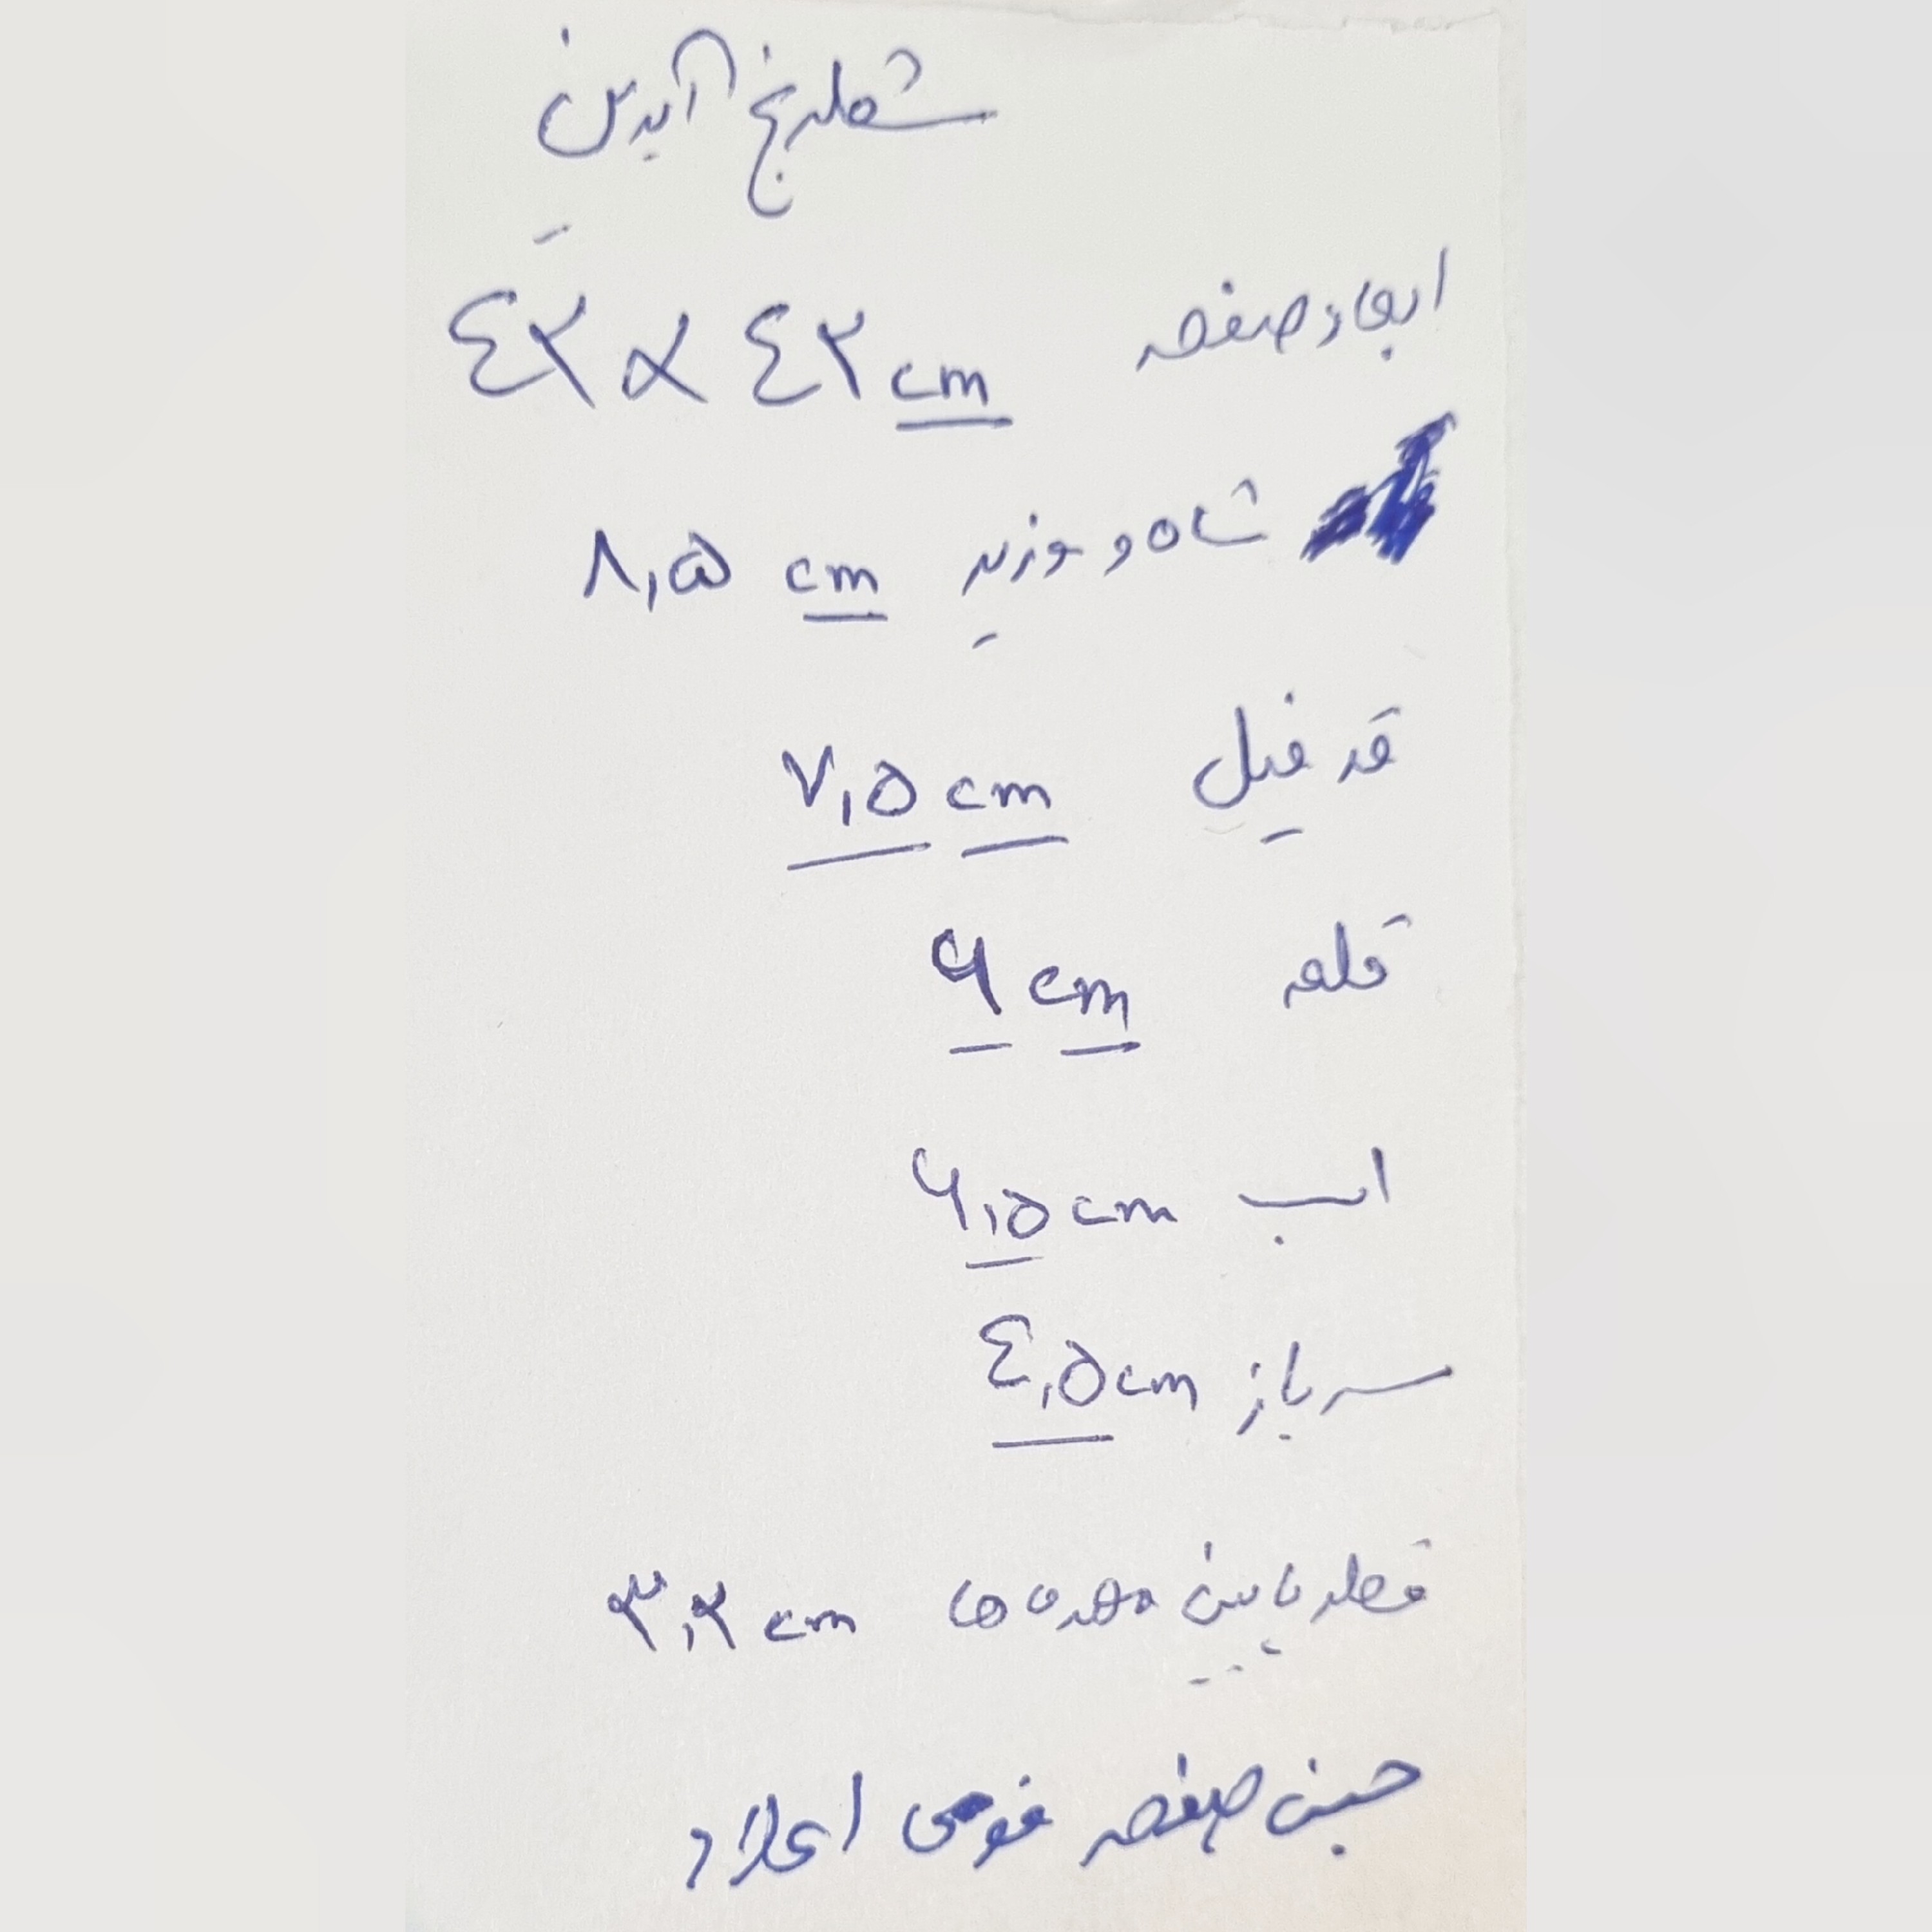 شطرنج آیدین
ابعاد صفحه ٤٣ × ٤٣ cm
شاه و وزیر ۸,۵ cm
قد فیل ۷,۵ cm
قلعه ۶ cm
اسب ۶,۵ cm
سرباز ٤,۵ cm
قطر پایین مهره ها ۳,۲ cm
جنس صفحه فومی اعلاء